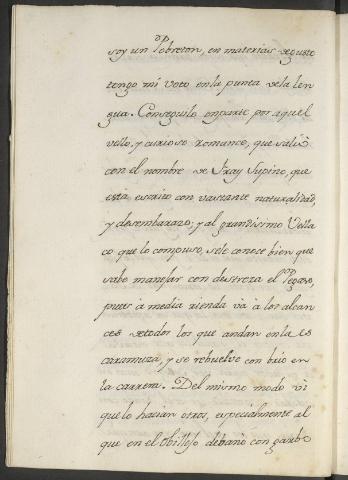 soy un Pobreton, en materias de gusto
tengo mi voto en la punta de la len
gua. Conseguilo en parte por aquel
vello, y curioso Romance, que salió
con el nombre de Fray Supino, que
está escrito con vastante naturalidad,
y desembarazo; y al grandissimo Vella
co que lo compuso, se le conoce bien que
sabe manejar con destreza el Pegaso,
pues à media rienda và à los alcan
ces de todos los que andan en la es
caramuza, y se rebuelve con brio en
la carrera. Del mismo modo vi
que lo hacian otros, especialmente al
que en el Obillejo debanó con garbo